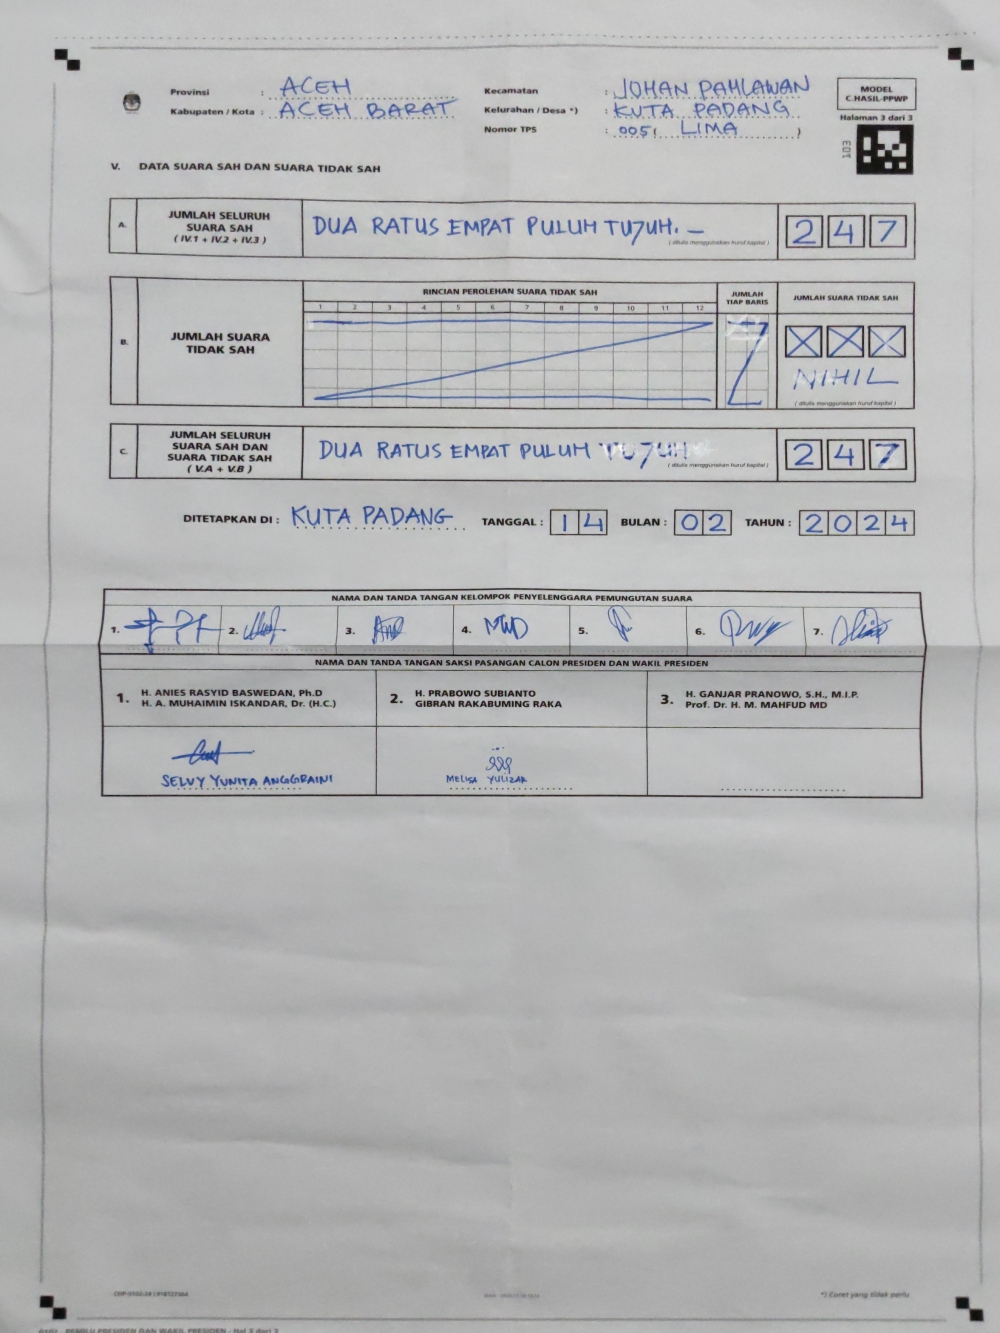 Provinsi : ACEH
Kabupaten / Kota : ACEH BARAT
Kecamatan : JOHAN PAHLAWAN
Kelurahan / Desa *) : KUTA PADANG
Nomor TPS : 005 ( LIMA )
MODEL
C.HASIL-PPWP
Halaman 3 dari 3
ED1
V. DATA SUARA SAH DAN SUARA TIDAK SAH
A. JUMLAH SELURUH
SUARA SAH
( IV.1 + IV.2 + IV.3 )
DUA RATUS EMPAT PULUH TUJUH. –
( ditulis menggunakan huruf kapital )
2 4 7
B. JUMLAH SUARA
TIDAK SAH
RINCIAN PEROLEHAN SUARA TIDAK SAH
1 2 3 4 5 6 7 8 9 10 11 12
JUMLAH
TIAP BARIS
JUMLAH SUARA TIDAK SAH
X X X
NIHIL
( ditulis menggunakan huruf kapital )
C. JUMLAH SELURUH
SUARA SAH DAN
SUARA TIDAK SAH
( V.A + V.B )
DUA RATUS EMPAT PULUH TUJUH
( ditulis menggunakan huruf kapital )
2 4 7
DITETAPKAN DI : KUTA PADANG TANGGAL : 14 BULAN : 02 TAHUN : 2024
NAMA DAN TANDA TANGAN KELOMPOK PENYELENGGARA PEMUNGUTAN SUARA
1. 2. 3. 4. 5. 6. 7.
NAMA DAN TANDA TANGAN SAKSI PASANGAN CALON PRESIDEN DAN WAKIL PRESIDEN
1. H. ANIES RASYID BASWEDAN, Ph.D
H. A. MUHAIMIN ISKANDAR, Dr. (H.C.)
2. H. PRABOWO SUBIANTO
GIBRAN RAKABUMING RAKA
3. H. GANJAR PRANOWO, S.H., M.I.P.
Prof. Dr. H. M. MAHFUD MD
SELVY YUNITA ANGGRAINI
MELISA YULIZAR
*) Coret yang tidak perlu
PEMILU PRESIDEN DAN WAKIL PRESIDEN - Hal 3 dari 3